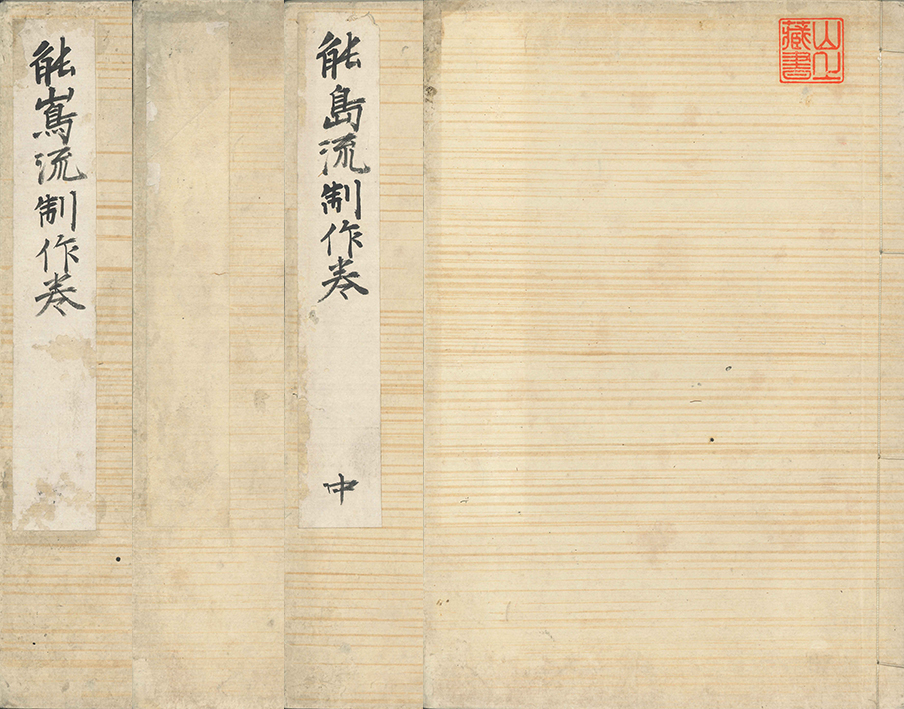 山上
藏書
能島流制作巻 中
能嶌流制作巻